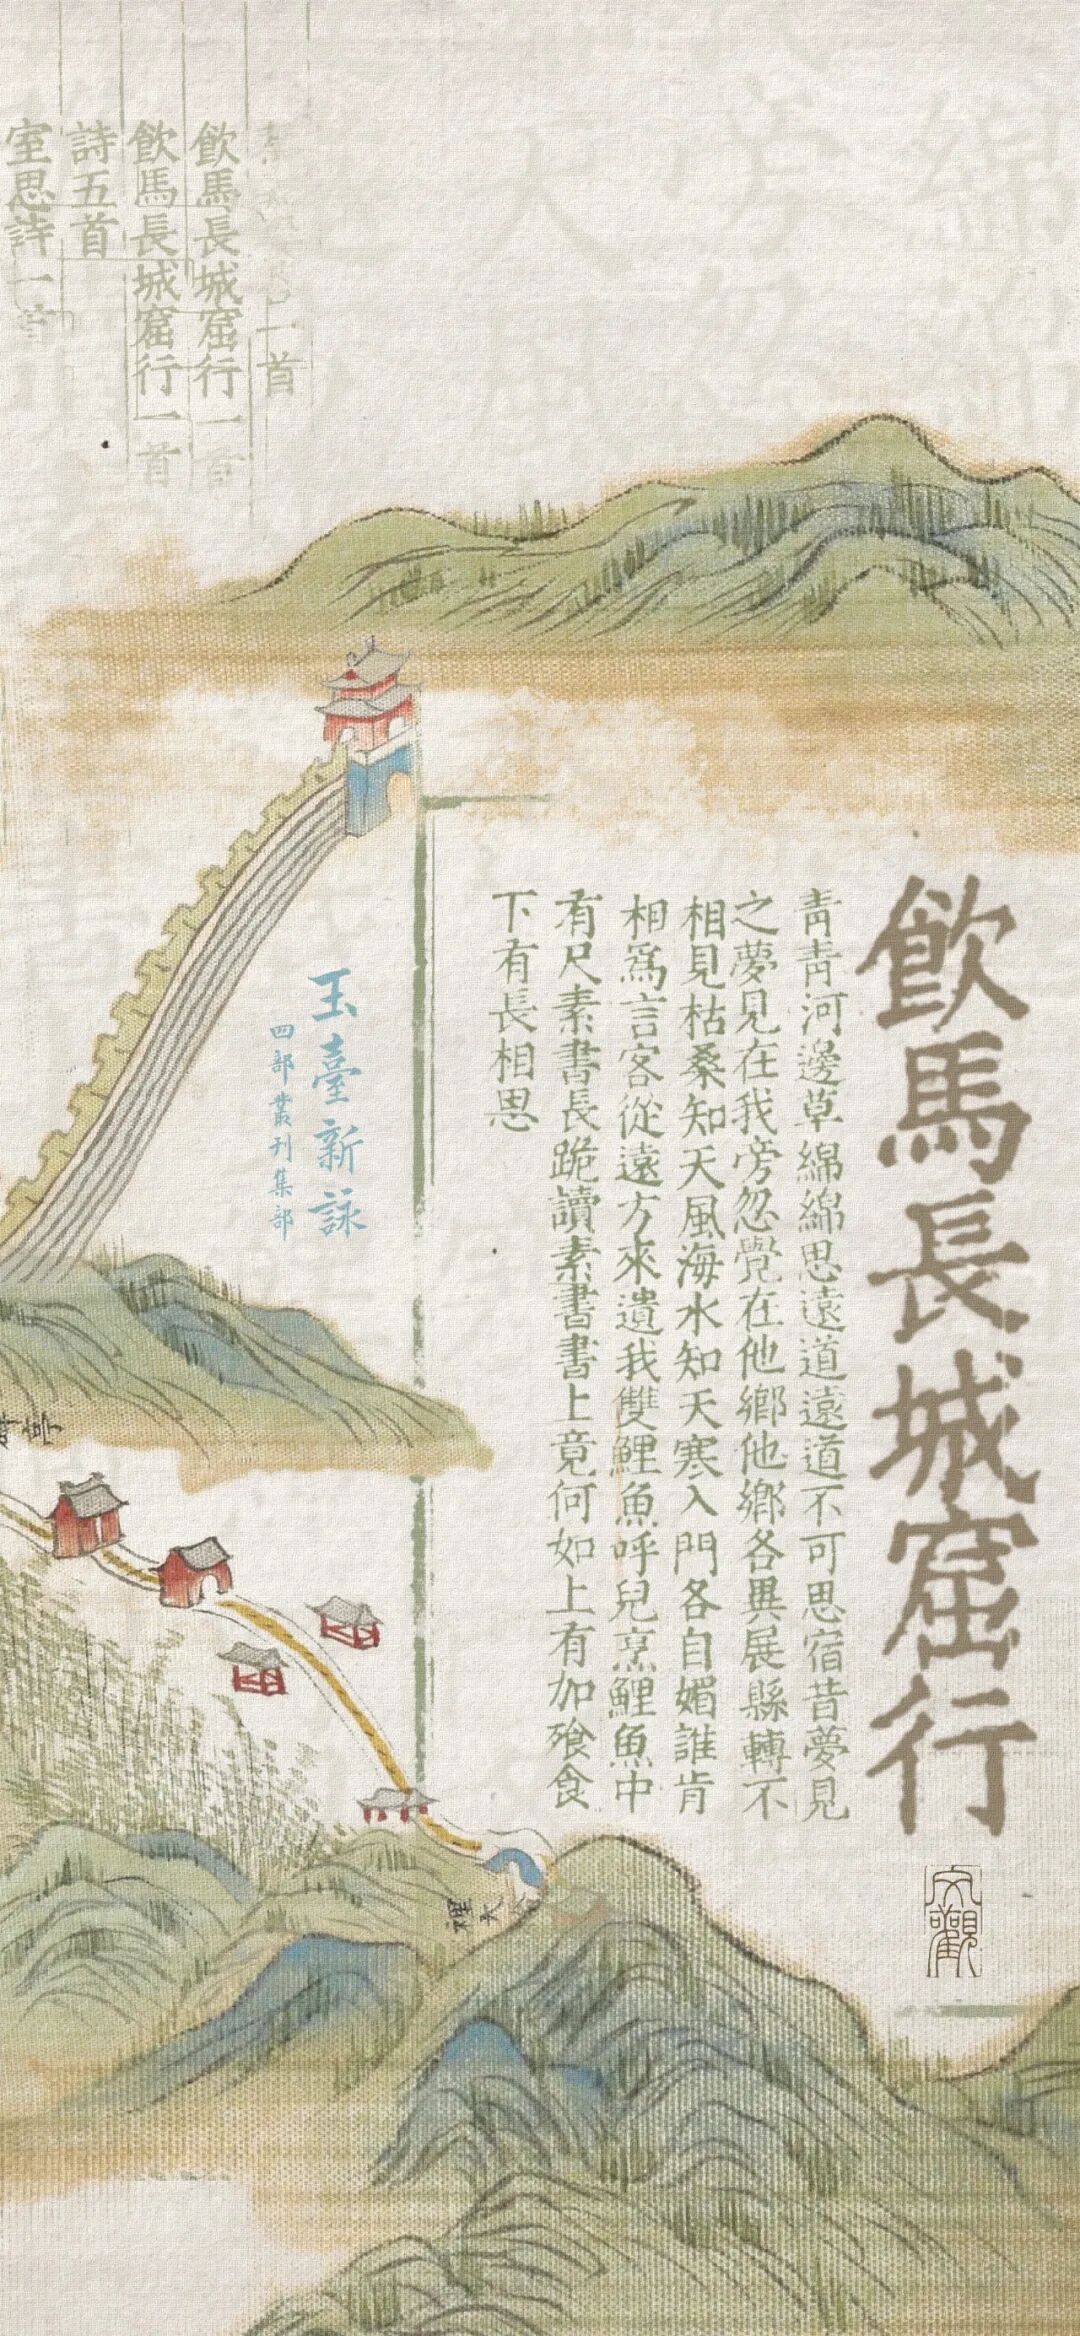 飮馬長城窟行
青青河邊草綿綿思遠道遠道不可思宿昔夢見
之夢見在我旁忽覺在他鄉他鄉各異展縣轉不
相見枯桑知天風海水知天寒入門各自媚誰肯
相爲言客從遠方來遺我雙鯉魚呼兒烹鯉魚中
有尺素書長跪讀素書書上竟何如上有加飱食
下有長相思
玉臺新詠
四部叢刊集部
一首
飮馬長城窟行一首
飮馬長城窟行一首
詩五首
室思詩一首
文觀